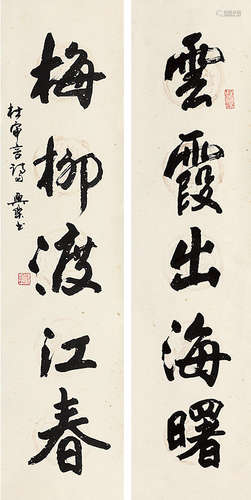 雲霞出海曙
梅柳渡江春
杜審言詩句